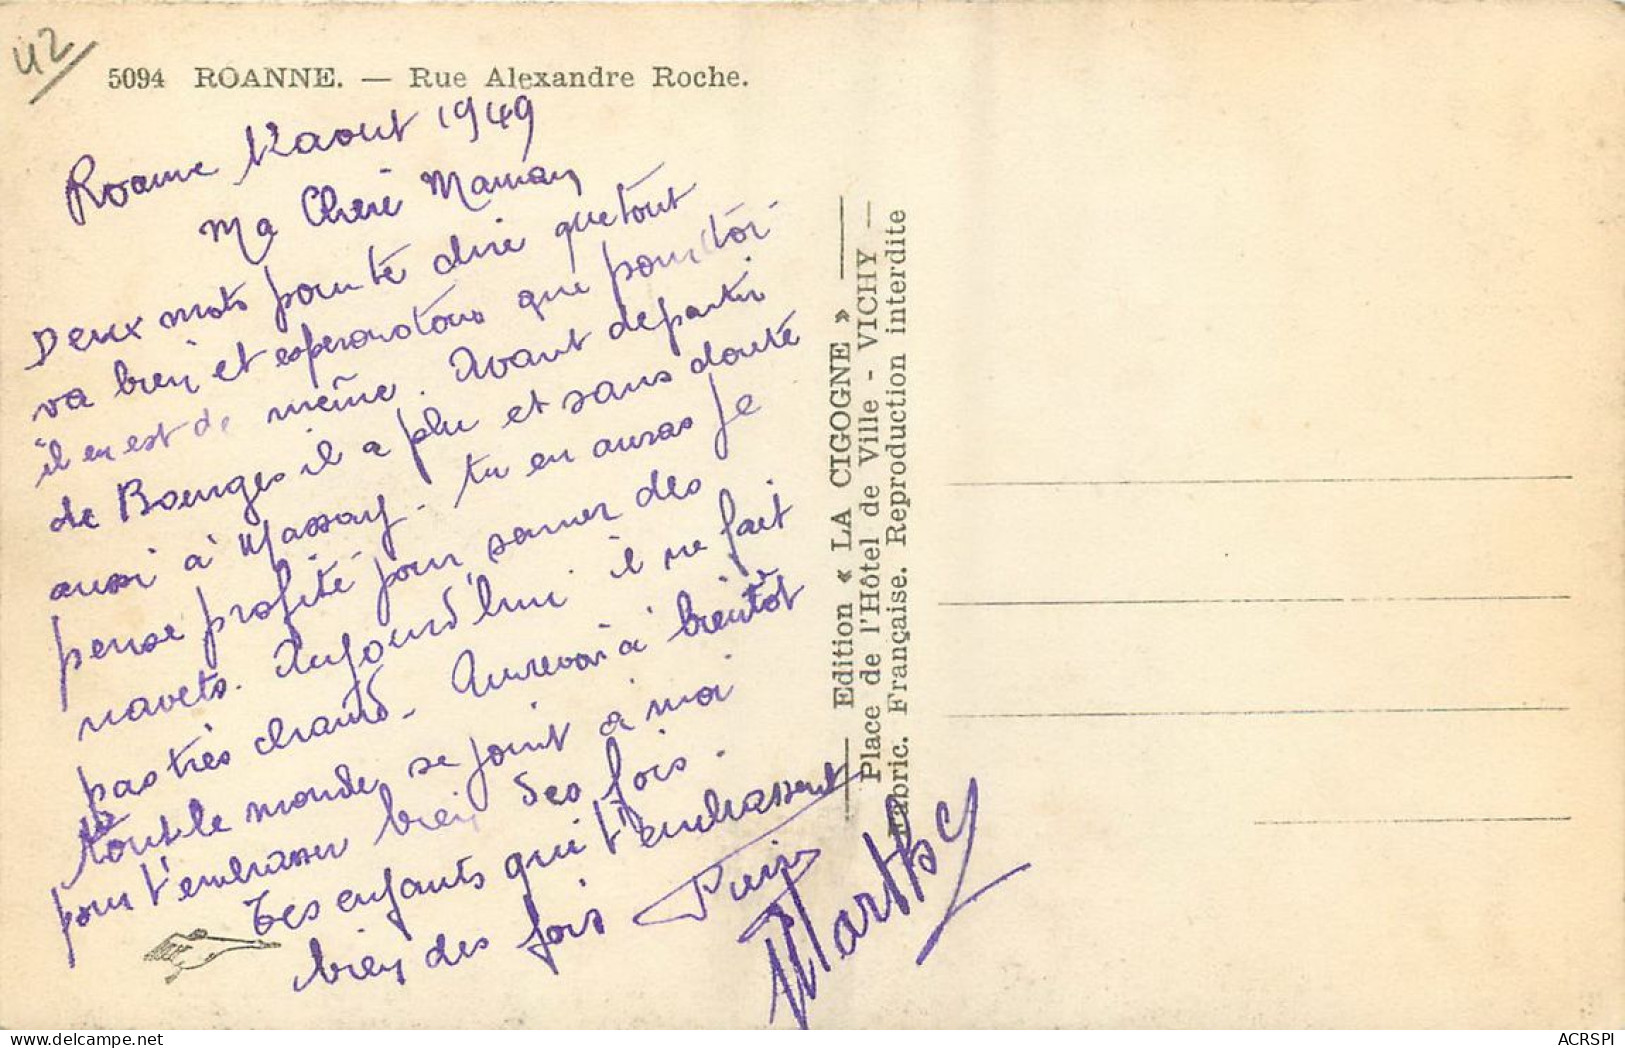 42
5094 ROANNE. — Rue Alexandre Roche.
Roanne 12 aout 1949
Ma Chère Maman
Deux mots pour te dire que tout
va bien et esperons tous que pour toi
il en est de même. Avant de partir
de Bourges il a plu et sans doute
aussi à Massay. tu en auras je
pense profité pour semer des
navets. Aujourd'hui il ne fait
pas très chaud. Aurevoir à bientôt
Tout le monde se joint à moi
pour t'embrasser bien des fois.
Tes enfants qui t'embrassent
bien des fois
Marthe
Edition « LA CIGOGNE »
Place de l'Hôtel de Ville - VICHY —
Fabric. Française. Reproduction interdite
ACRSPI